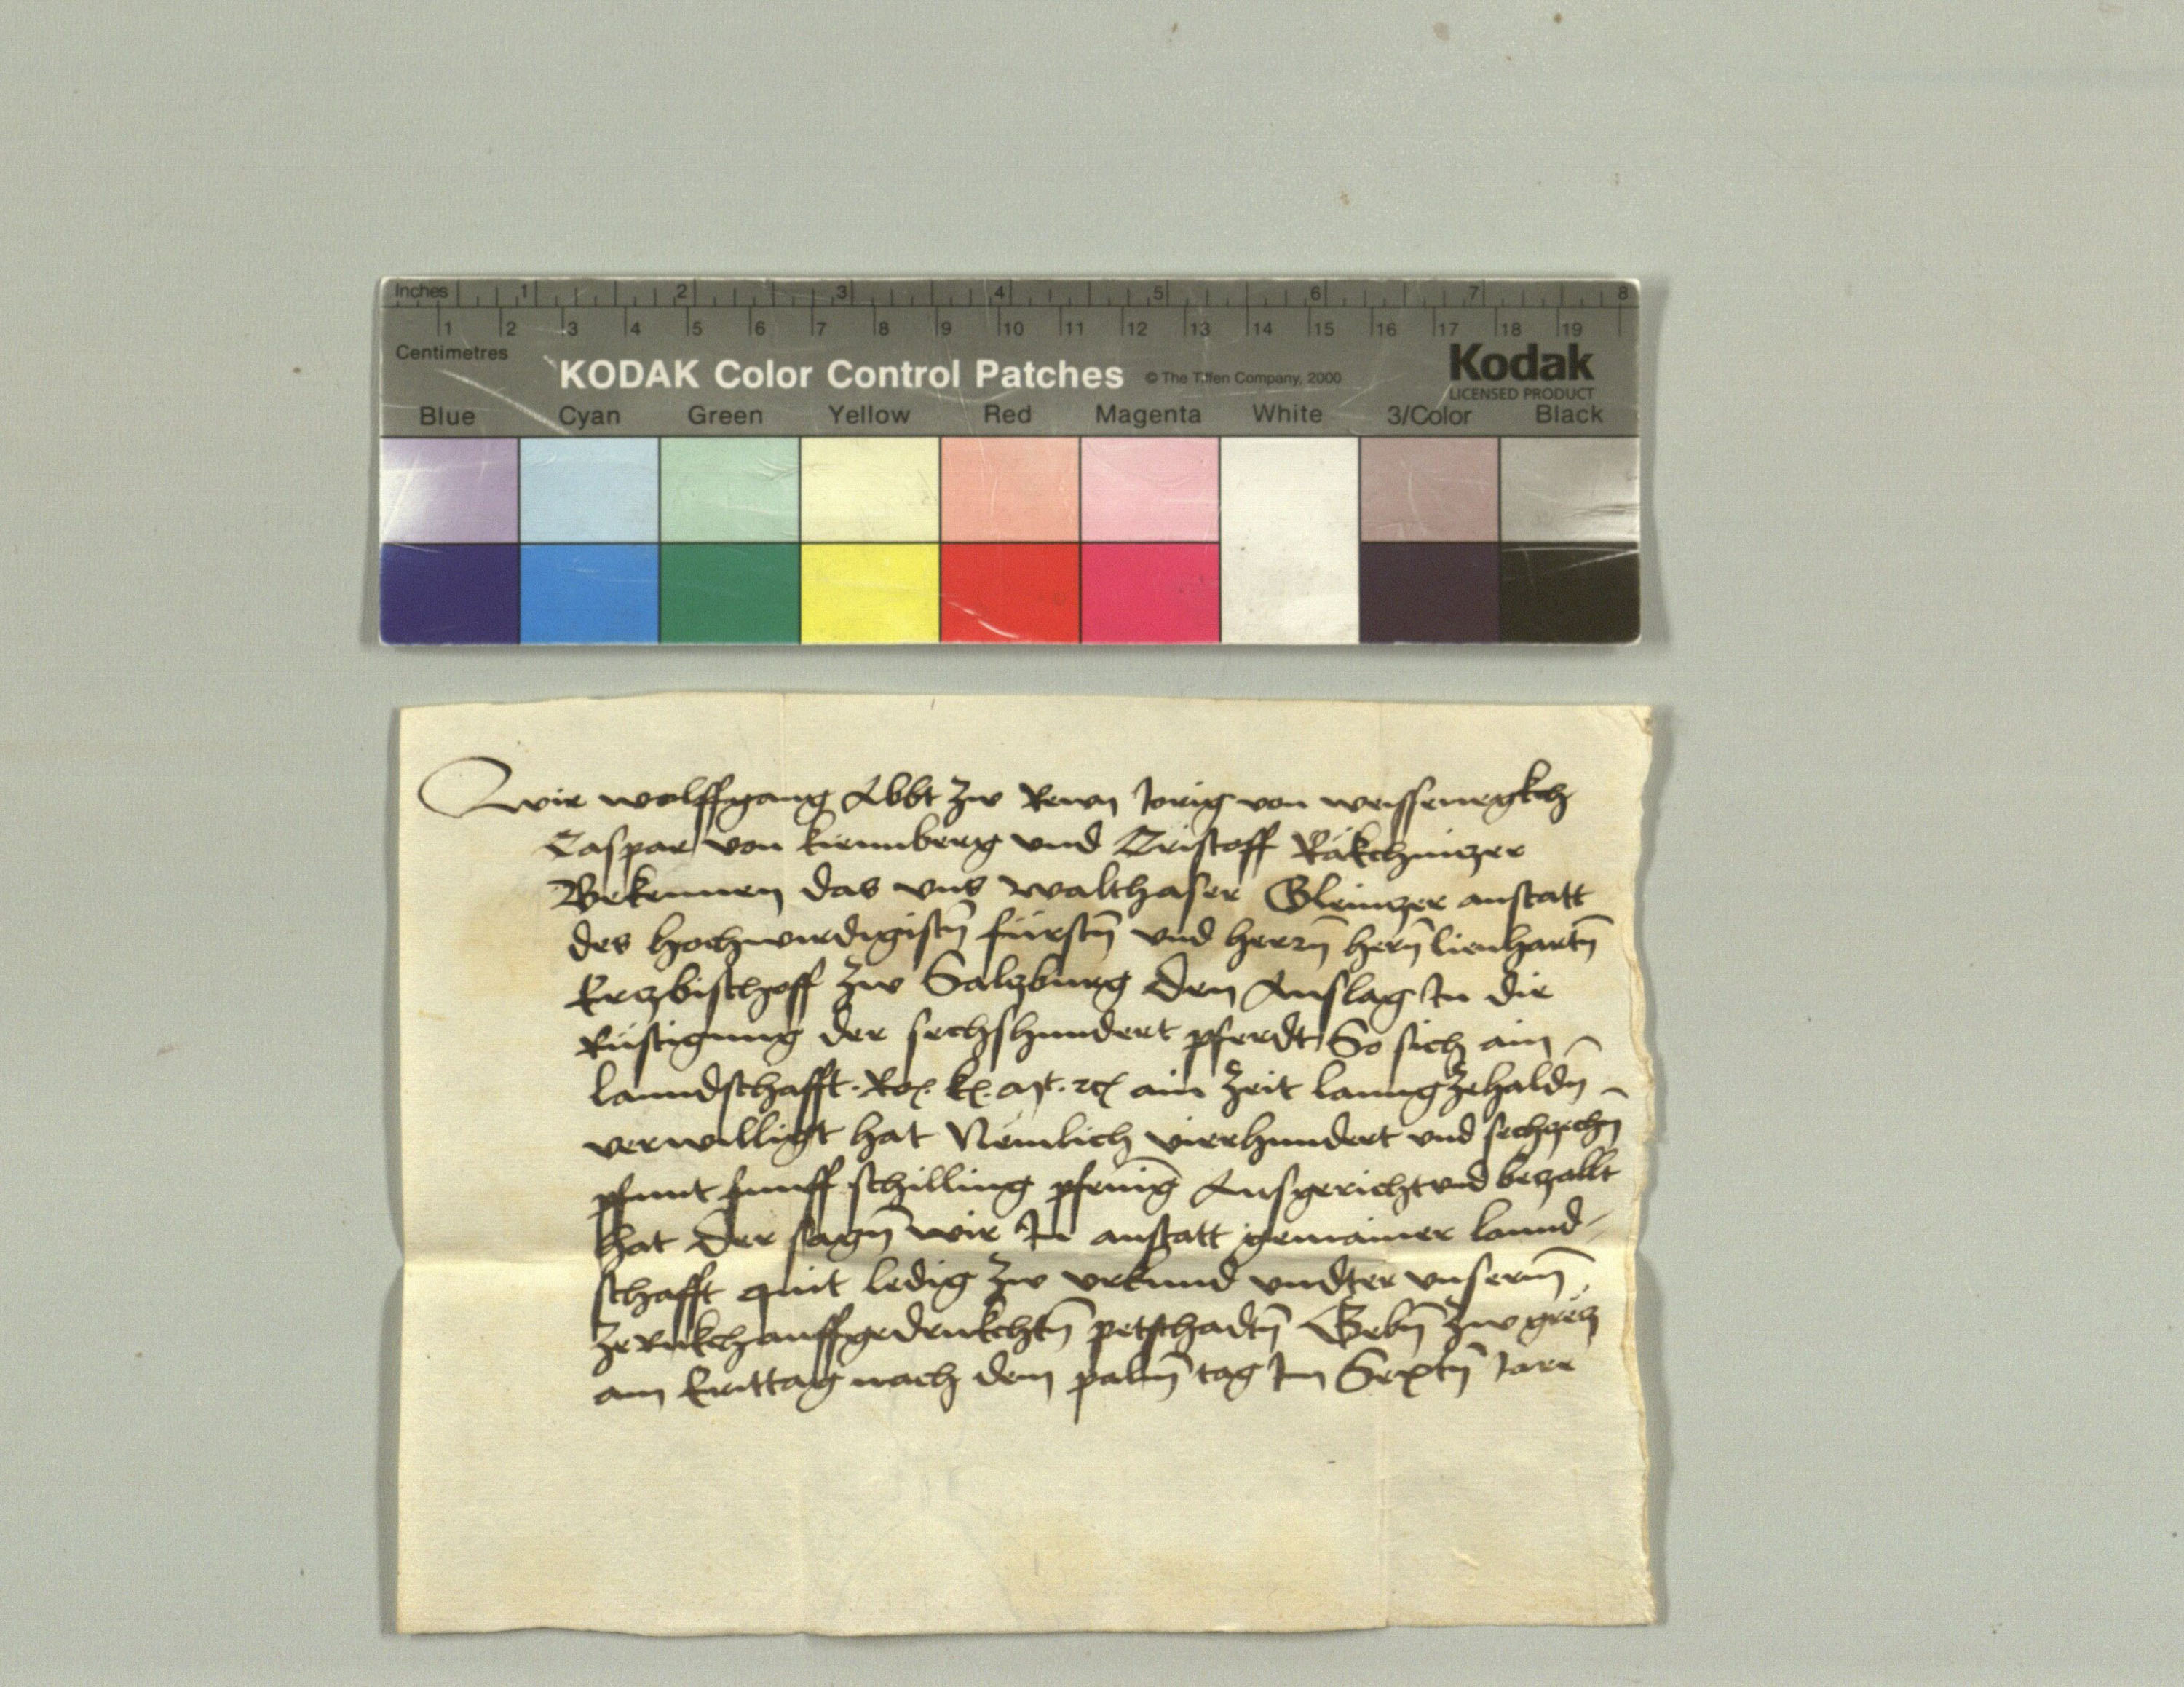 Inches 1 2 3 4 5 6 7 8
1 2 3 4 5 6 7 8 9 10 11 12 13 14 15 16 17 18 19
Centimetres
KODAK Color Control Patches © The Tiffen Company, 2000 Kodak
LICENSED PRODUCT
Blue Cyan Green Yellow Red Magenta White 3/Color Black
Wir wolffgang Abbt zw Rewn Jorig von weissenegkch
Caspar von kiennberg vnd Cristoff Räkchnitzer
Bekennen das vns walthaser Gleintzer anstatt
des hochwirdigistn̄ fürstn̄ vnd herrn̄ hern̄ lienhartn̄
Ertzbischoff zw Saltzburg den Anslag In die
Rüstigung der sechshundert pferdt So sich ain
lanndschafft. Ro. k. mt. rc ain zeit lanng zehaldn̄
verwilligt hat Nemlich vierhundert vnd sechtzehn̄
pfunt funff schilling pfenīg Ausgericht vnd betzallt
hat Der sagn̄ wir In anstatt gemainer lannd-
schafft quit ledig zw vrkund vndter vnserm̄
zerukch auffgedrukchtn̄ petschadtn̄ Gebn̄ zw gretz
am Erittag nach dem palm̄ tag Im Sextn̄ Jare